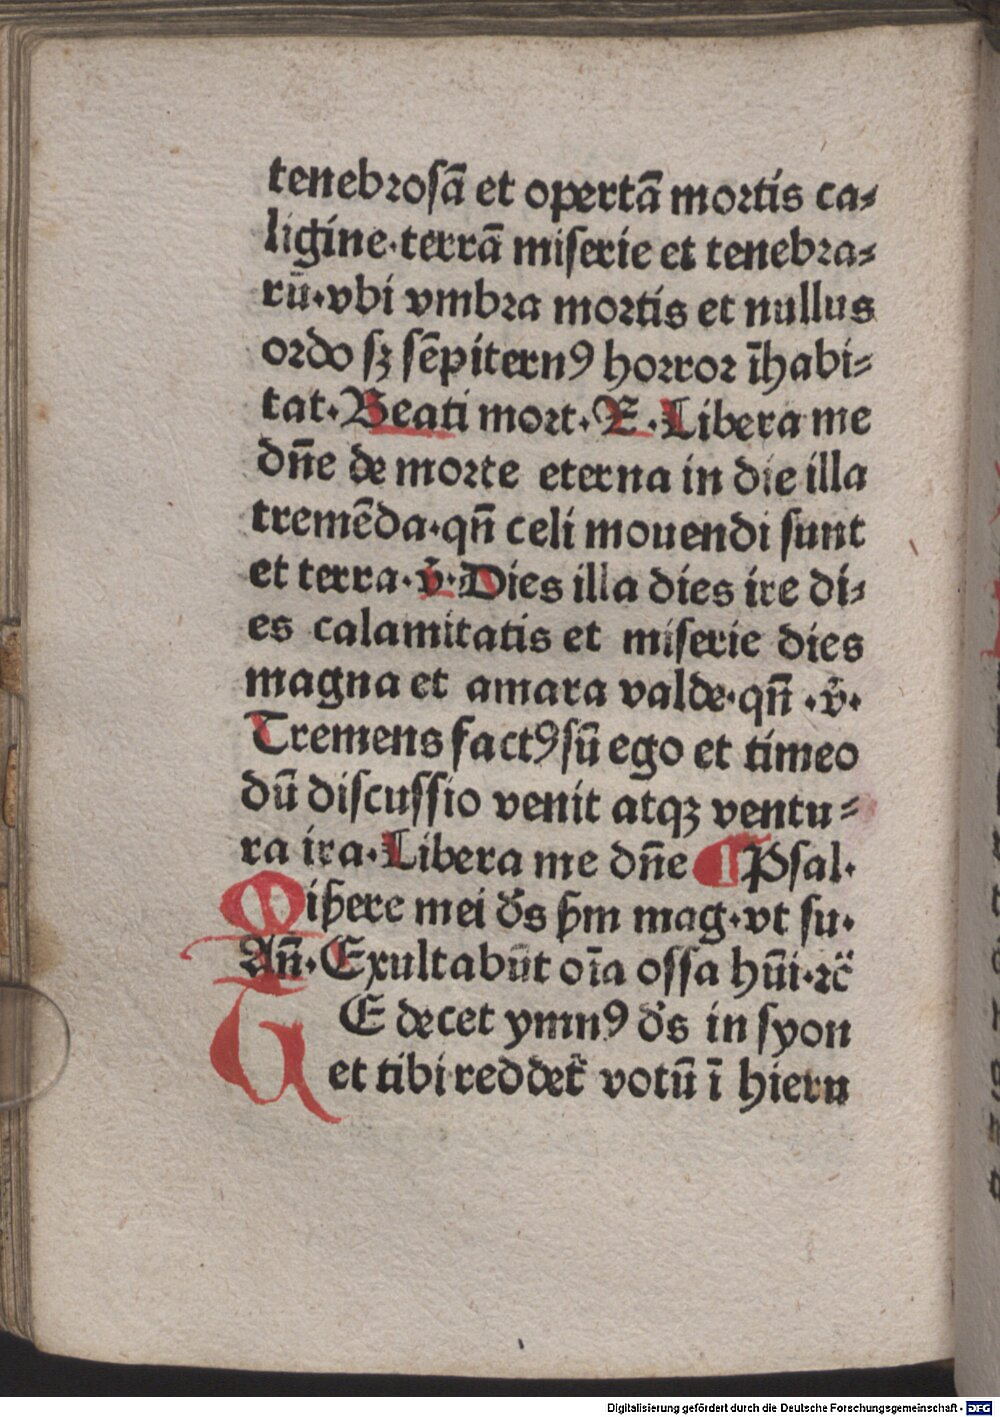 tenebꝛoſā et opertā moꝛtis ca⸗
ligine·terrā miſerie et tenebꝛa⸗
rū·vbi vmbꝛa moꝛtis et nullus
oꝛdo ſꝫ ſēpiternꝰ hoꝛroꝛ īhabi⸗
tat·Beati moꝛt·℟·Libera me
dn̄e de moꝛte eterna in die illa
tremēda·qn̄ celi mouendi ſunt
et terra·v̄·Dies illa dies ire di⸗
es calamitatis et miſerie dies
magna et amara valde·qn̄ ·v̄·
Tremens factꝰ ſū ego et timeo
dū diſcuſſio venit atqꝫ ventu⸗
ra ira·Libera me dn̄e ¶ Pſal·
Miẜere mei ds̄ ẜm mag·vt ſu·
An̄·Exultabūt oīa oſſa hūi·ꝛc̄
TE decet ymnꝰ ds̄ in ſyon
et tibi reddet᷑ votū ī hieru
Digitalisierung gefördert durch die Deutsche Forschungsgemeinschaft - DFG